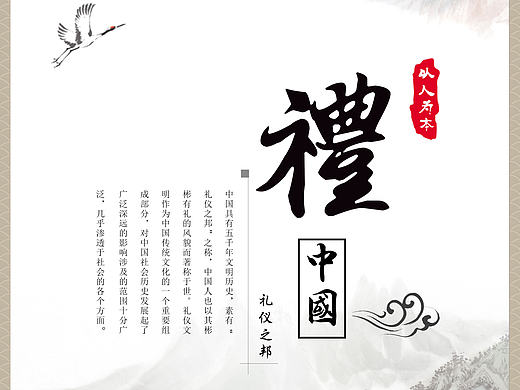 以人为本
禮
中國
礼仪之邦
中国具有五千年文明历史，素有“
礼仪之邦”之称，中国人也以其彬
彬有礼的风貌而著称于世。礼仪文
明作为中国传统文化的一个重要组
成部分，对中国社会历史发展起了
广泛深远的影响涉及的范围十分广
泛，几乎渗透于社会的各个方面。